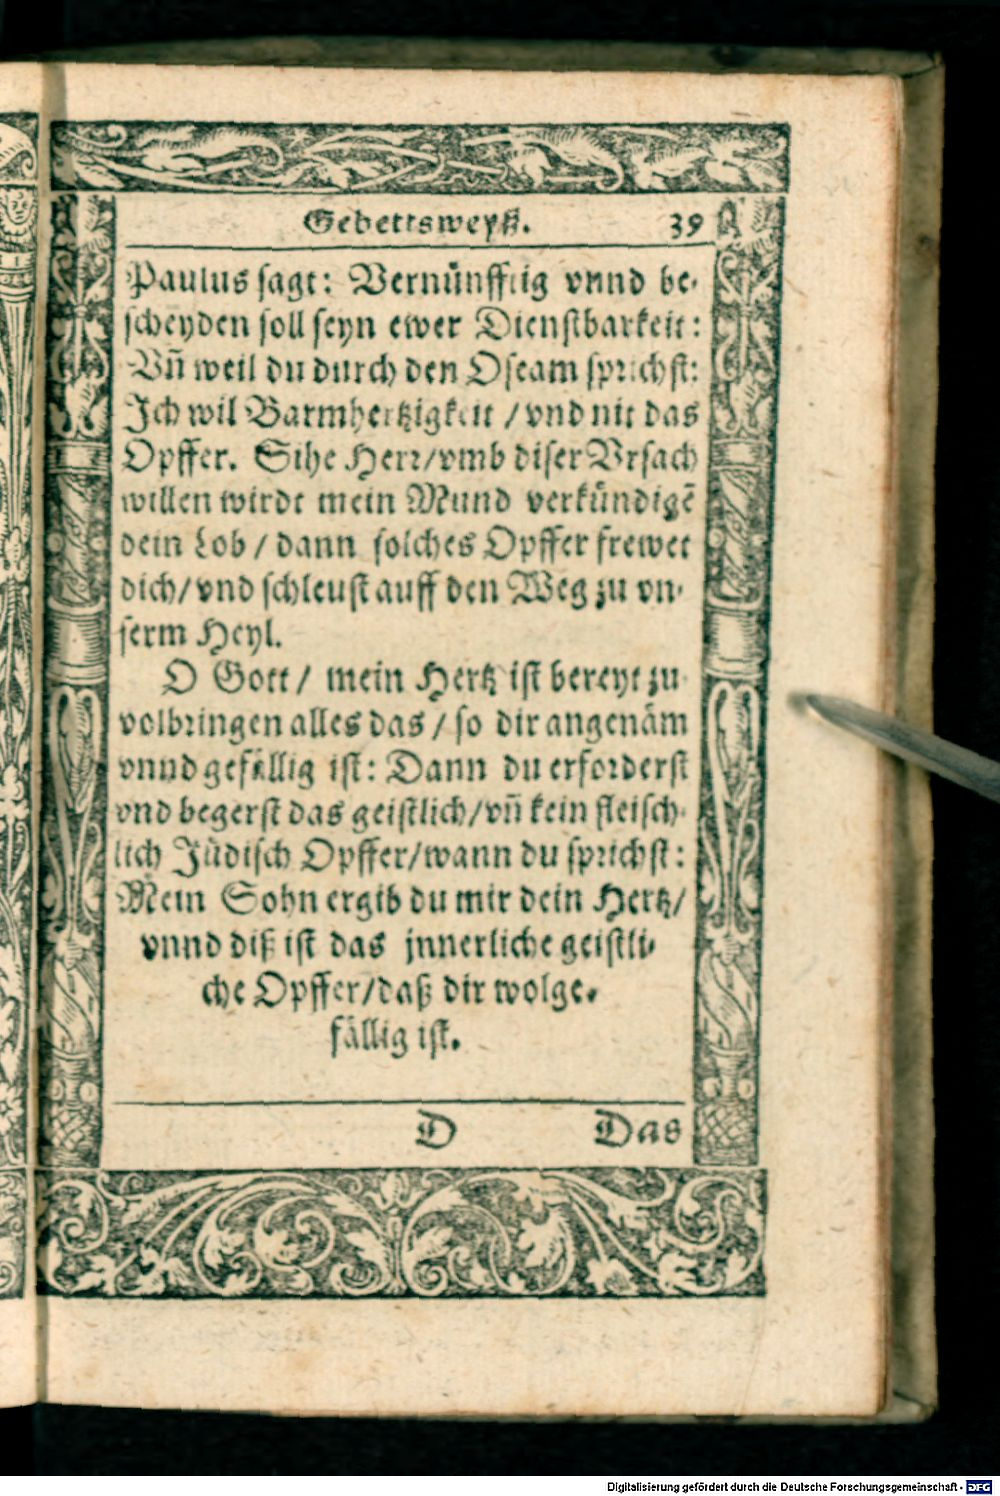 Gebettsweyß. 39
Paulus sagt: Vernünfftig vnnd be-
scheyden soll seyn ewer Dienstbarkeit:
Vñ weil du durch den Oseam sprichst:
Ich wil Barmhertzigkeit / vnd nit das
Opffer. Sihe Herr/vmb diser Vrsach
willen wirdt mein Mund verkündigẽ
dein Lob / dann solches Opffer frewet
dich/ vnd schleust auff den Weg zu vn-
serm Heyl.
O Gott / mein Hertz ist bereyt zu
volbringen alles das / so dir angenäm
vnnd gefällig ist: Dann du erforderst
vnd begerst das geistlich/vñ kein fleisch-
lich Jüdisch Opffer/wann du sprichst:
Mein Sohn ergib du mir dein Hertz/
vnnd diß ist das jnnerliche geistli-
che Opffer/daß dir wolge-
fällig ist.
D Das
Digitalisierung gefördert durch die Deutsche Forschungsgemeinschaft - DFG